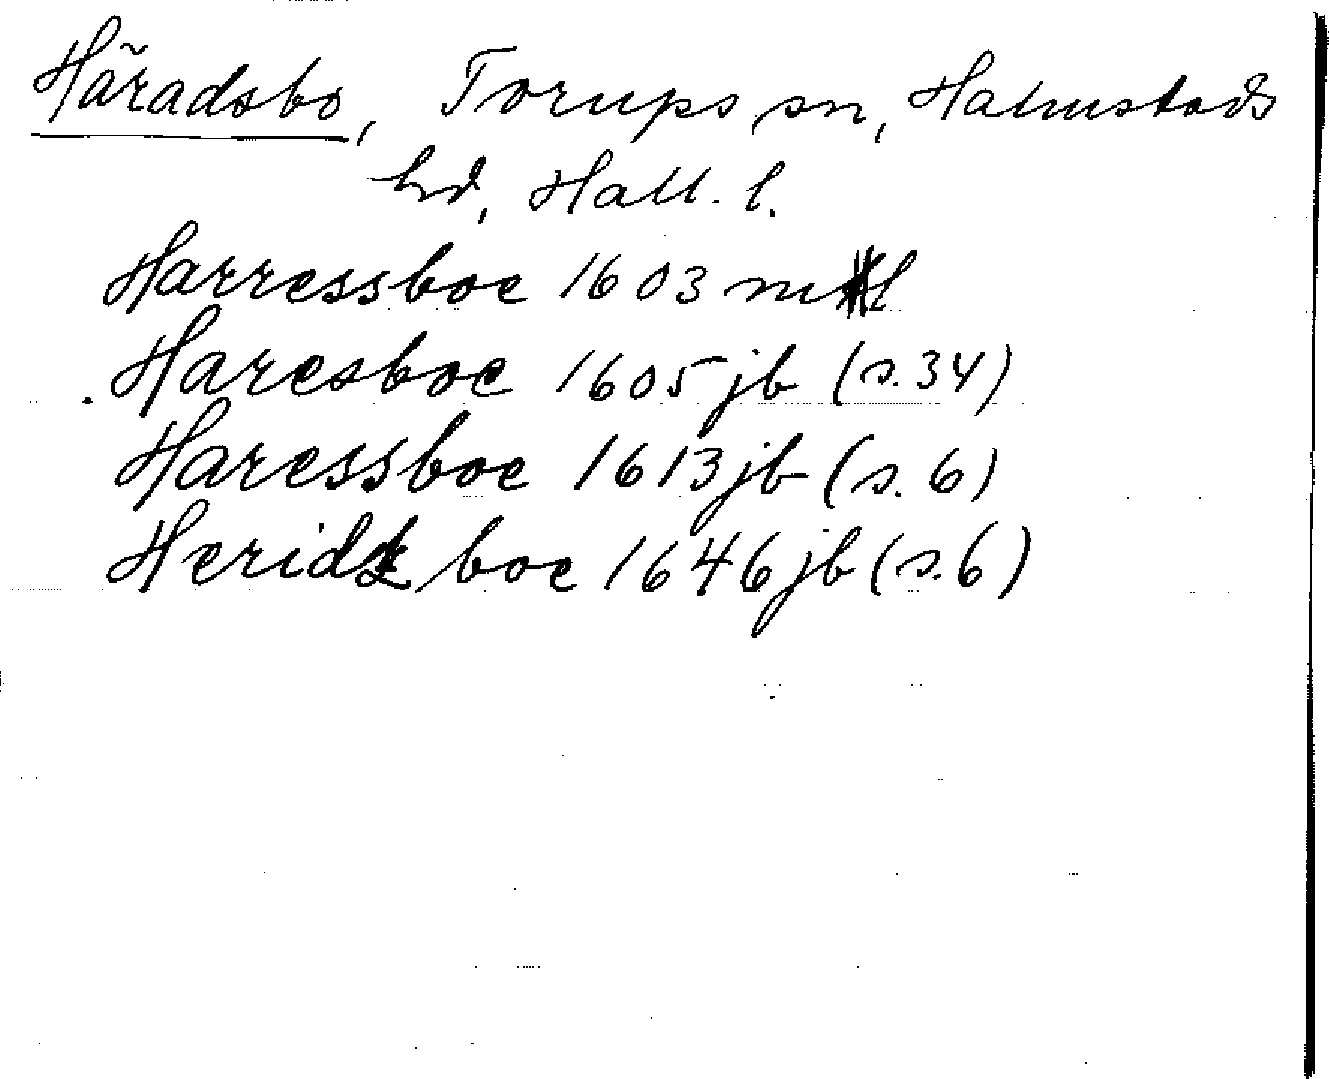 Häradsbo, Torups sn, Halmstads
hd, Hall. l.
Harressboe 1603 ml
Haresboe 1605 jb (s. 34)
Haressboe 1613 jb (s. 6)
boe 1646 jb (s. 6)